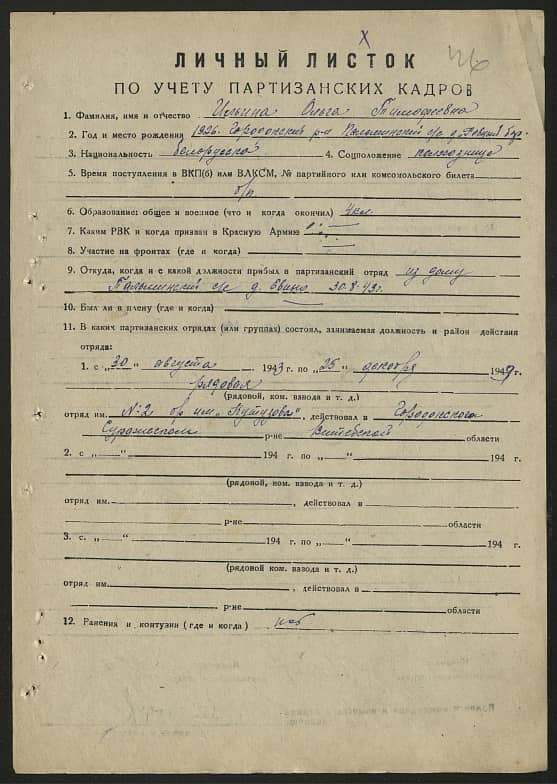 х
ЛИЧНЫЙ ЛИСТОК
ПО УЧЕТУ ПАРТИЗАНСКИХ КАДРОВ
1. Фамилия, имя и отчество Ильина Ольга Тимофеевна
2. Год и место рождения 1926. Городокский р-н Пальминский с/с д.
3. Национальность белорусска 4. Соцположение колхозница
5. Время поступления в ВКП(б) или ВЛКСМ, № партийного или комсомольского билета
б/п
6. Образование: общее и военное (что и когда окончил) 4 кл.
7. Каким РВК и когда призван в Красную Армию
8. Участие на фронтах (где и когда)
9. Откуда, когда и с какой должности прибыл в партизанский отряд из дому
Пальминский с/с д. 30.8.43г.
10. Был ли в плену (где и когда)
11. В каких партизанских отрядах (или группах) состоял, занимаемая должность и район действия
отряда:
1. с „30" августа 1943 г. по „25" декабря 194 г.
рядовая
(рядовой, ком. взвода и т. д.)
отряд им. №2 бр им. „Кутузова", действовал в Городокского
Суражском р-не Витебской области
2. с „ " 194 г. по „ " 194 г.
(рядовой, ком. взвода и т. д.)
отряд им. , действовал в
р-не области
3. с. „ " 194 г. по „ " 194 г.
(рядовой ком. взвода и т. д.)
отряд им. , действовал в
р-не области
12. Ранения и контузии (где и когда) нет